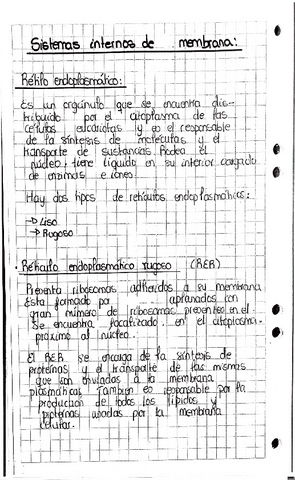 Sistemas internos de membrana:
Retículo endoplasmático:
Es un orgánulo que se encuentra dis-
tribuido por el citoplasma de las
células eucariotas y es el responsable
de la síntesis de moléculas y el
transporte de sustancias. Rodea el
núcleo, tiene líquido en su interior cargado
de enzimas e iones.
Hay dos tipos de retículos endoplasmáticos:
→ Liso
→ Rugoso
· Retículo endoplasmático rugoso (RER)
Presenta ribosomas adheridos a su membrana
Esta formado por aplanados con
gran número de ribosomas presentes en el
Se encuentra localizado en el citoplasma
próximo al núcleo.
El RER se encarga de la síntesis de
proteínas y el transporte de las mismas
que son enviadas a la membrana
plasmática. También es responsable por la
producción de todos los lípidos y
proteínas usadas por la membrana
celular.